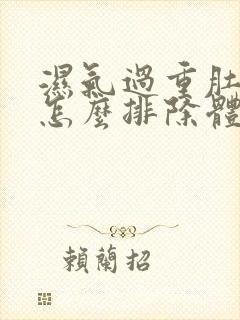 濕氣過重肚
怎麼排除體
賴蘭招